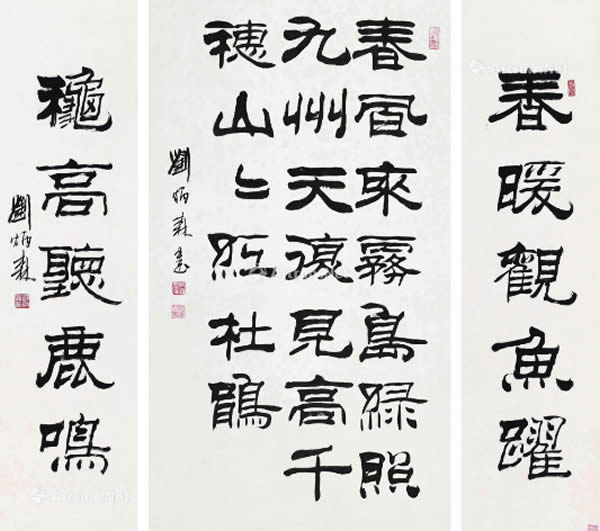 春暖觀魚躍
春風來霧島綠照
九州天復見高千
穗山々紅杜鵑
劉炳森書
龝高聽鹿鳴
劉炳森